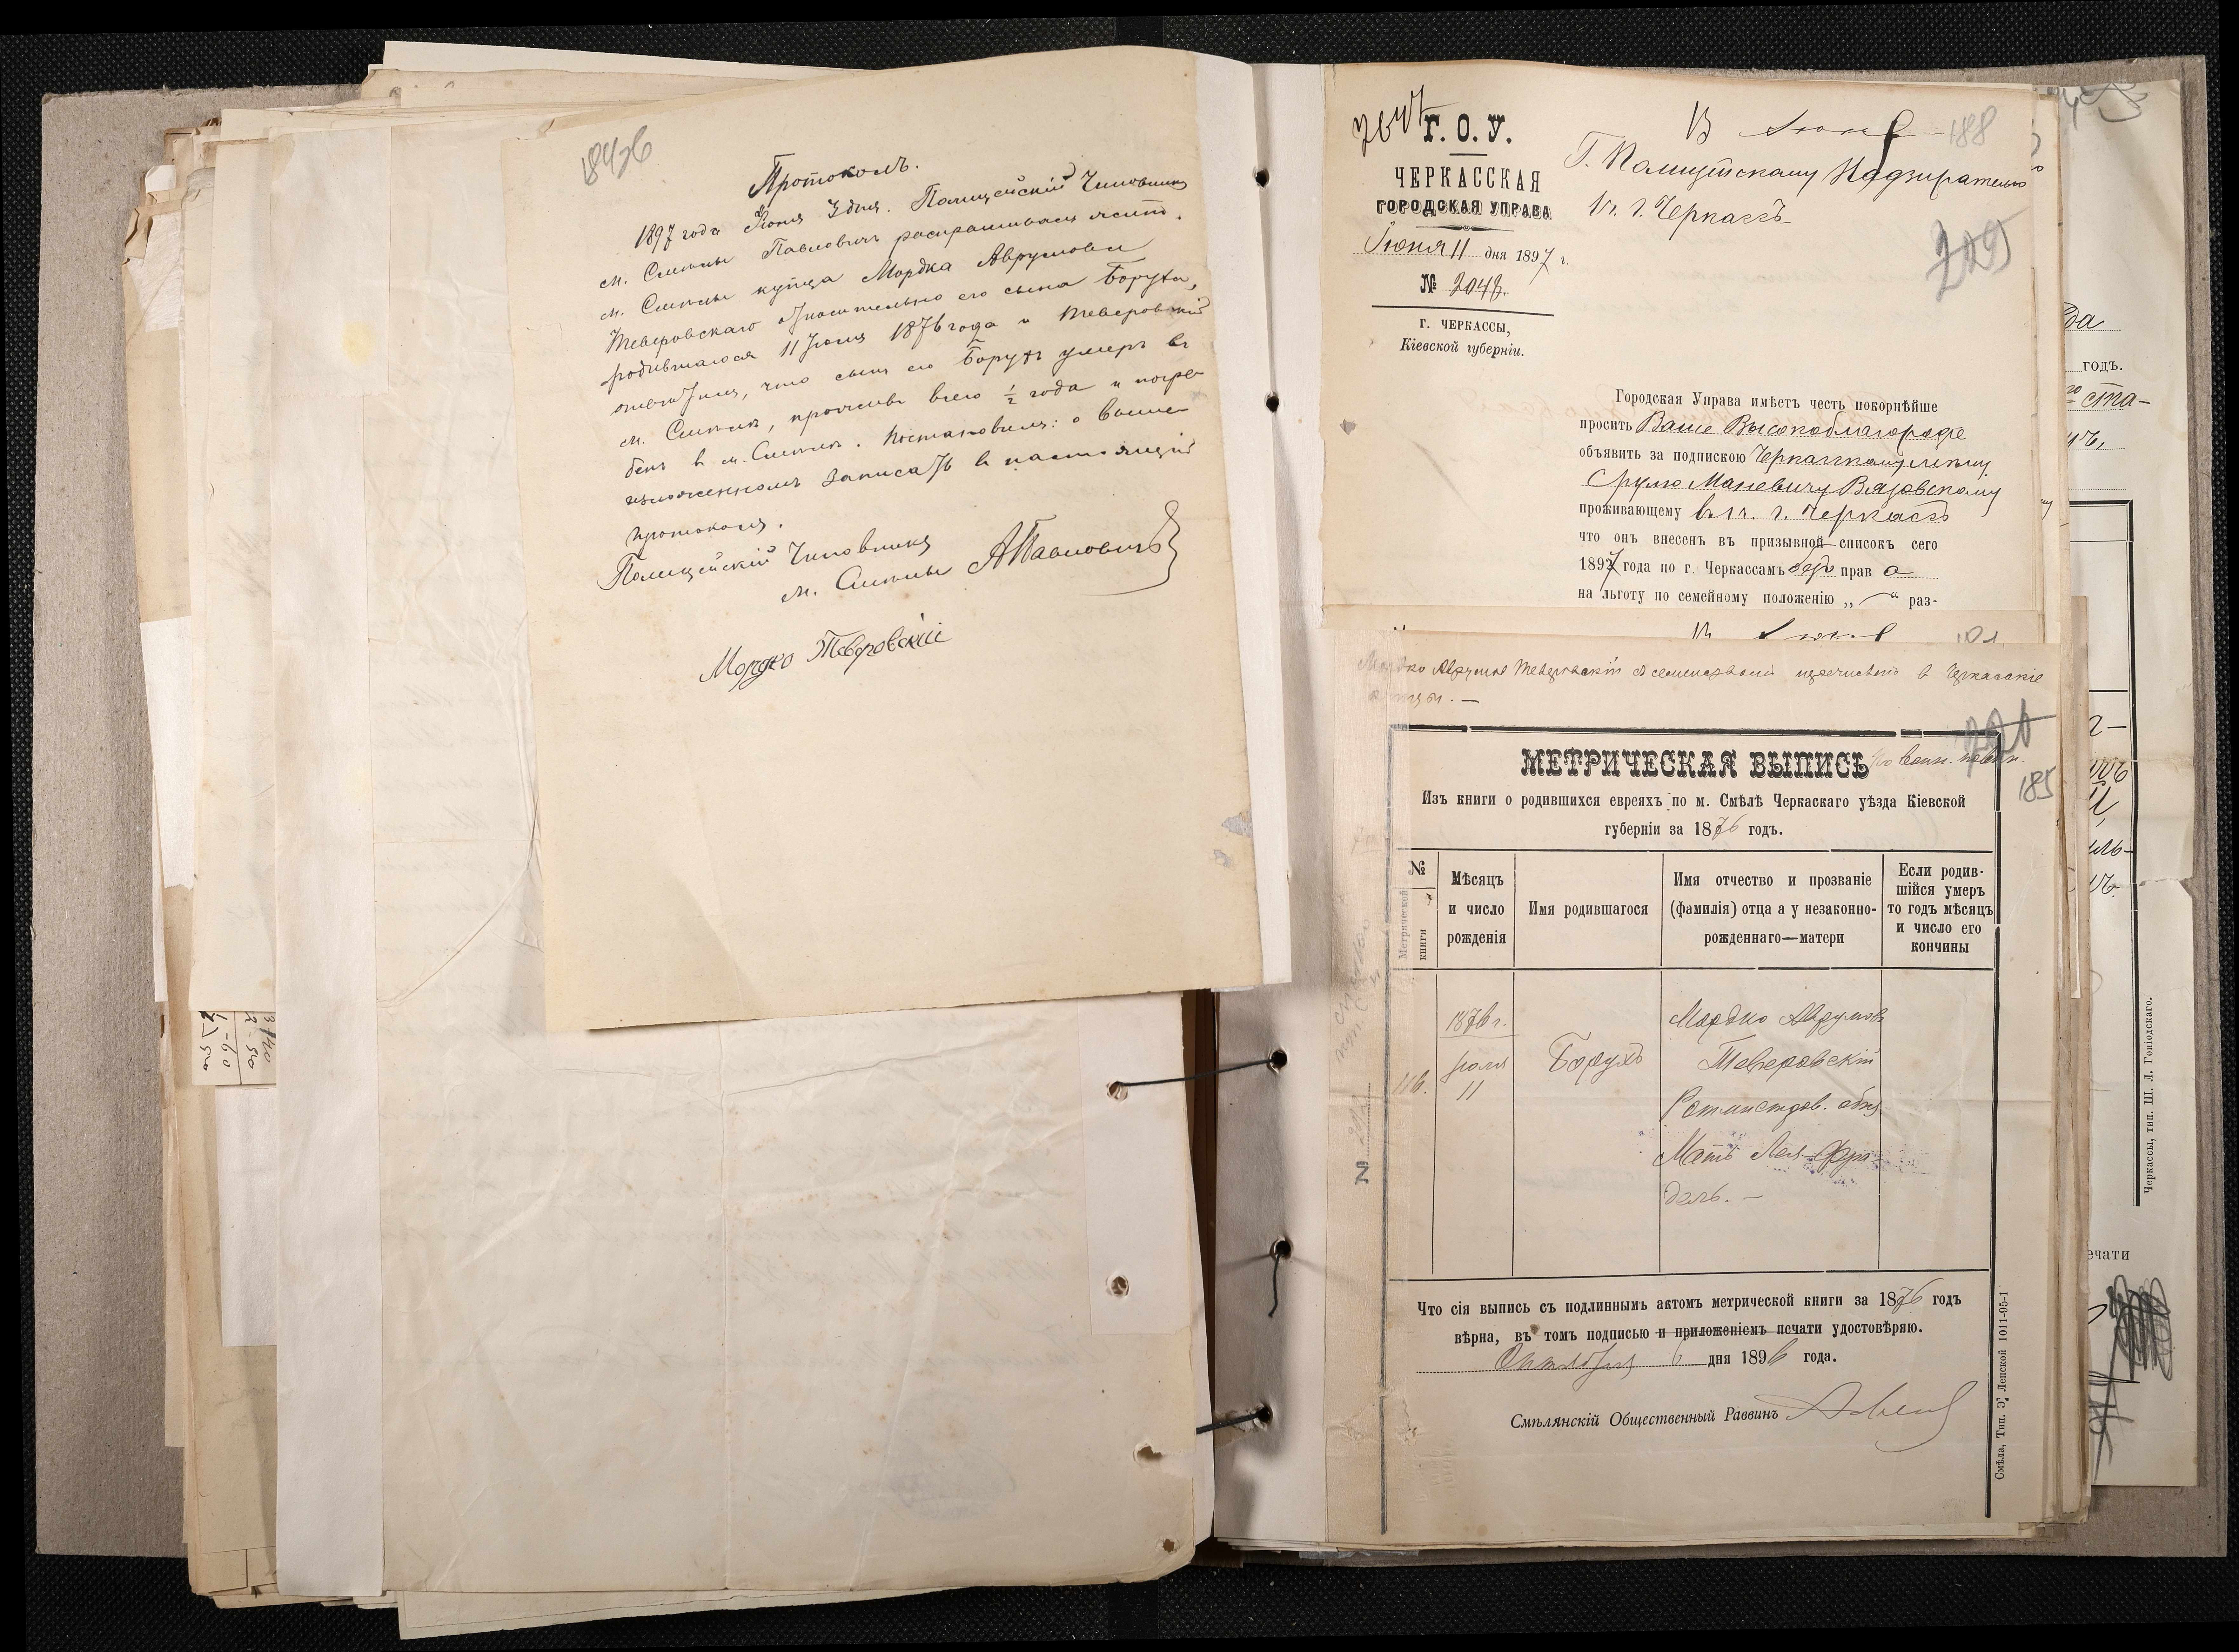 Протоколъ.
1897 года Іюня 3 дня. Полицейскій Чиновникъ
м. Смѣлы Павловичъ распрашивалъ жит.
м. Смѣлы купца Мордка Аврумова
Тверовскаго относительно его сына Боруха,
родившагося 11 Іюля 1876 года и Тверовскій
отвѣтилъ, что сынъ его Борухъ умеръ въ
м. Смѣлѣ, проживъ всего ½ года и погре-
бенъ въ м. Смѣлѣ. Постановилъ: о выше-
изложенномъ записать въ настоящій
протоколъ.
Полицейскій Чиновникъ
м. Смѣлы АПавловичъ
Мордко Тверовскій
Г. О. У.
ЧЕРКАССКАЯ
ГОРОДСКАЯ УПРАВА
Іюня 11 дня 1897 г.
№ 2048.
г. ЧЕРКАССЫ,
Кіевской губерніи.
188
Г. Полицейскому Надзирателю
1 ч. г. Черкассъ
205
Городская Управа имѣетъ честь покорнѣйше
просить Ваше Высокоблагородіе
объявить за подпискою Черкасскому мѣщ.
Срулю Маневичу Вязовскому
проживающему въ 1 ч. г. Черкассъ
что онъ внесенъ въ призывной списокъ сего
1897 года по г. Черкассамъ безъ прав а
на льготу по семейному положенію „ — “ раз-
Мордко Аврумов Тверовскій съ семействомъ перечисленъ въ Черкасскіе
купцы. —
МЕТРИЧЕСКАЯ ВЫПИСЬ по воин. повин.
185
Изъ книги о родившихся евреяхъ по м. Смѣлѣ Черкаскаго уѣзда Кіевской
губерніи за 1876 годъ.
№ Метрической книги
Мѣсяцъ и число рожденія
Имя родившагося
Имя отчество и прозваніе (фамилія) отца а у незаконно-рожденнаго—матери
Если родив-шійся умеръ то годъ мѣсяцъ и число его кончины
1876 г.
Іюля
11
Борухъ
Мордко Аврумовъ
Тверовскій
Ротмистров. общ.
Мать Лея-Фра-
дель. —
Что сія выпись съ подлиннымъ актомъ метрической книги за 1876 годъ
вѣрна, въ томъ подписью и приложеніемъ печати удостовѣряю.
Октября 6 дня 1896 года.
Смѣлянскій Общественный Раввинъ
Смѣла, Тип. Э. Лепской 1011-95-1
годъ.
ечати
Черкассы, тип. Ш. Л. Гоніодскаго.